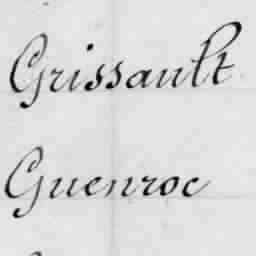 Grissault
Guenroc